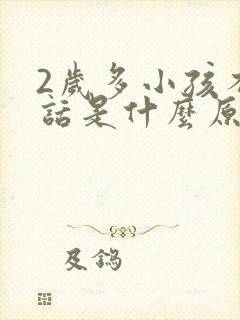 2歲多小孩不
話是什麼原
及鎢